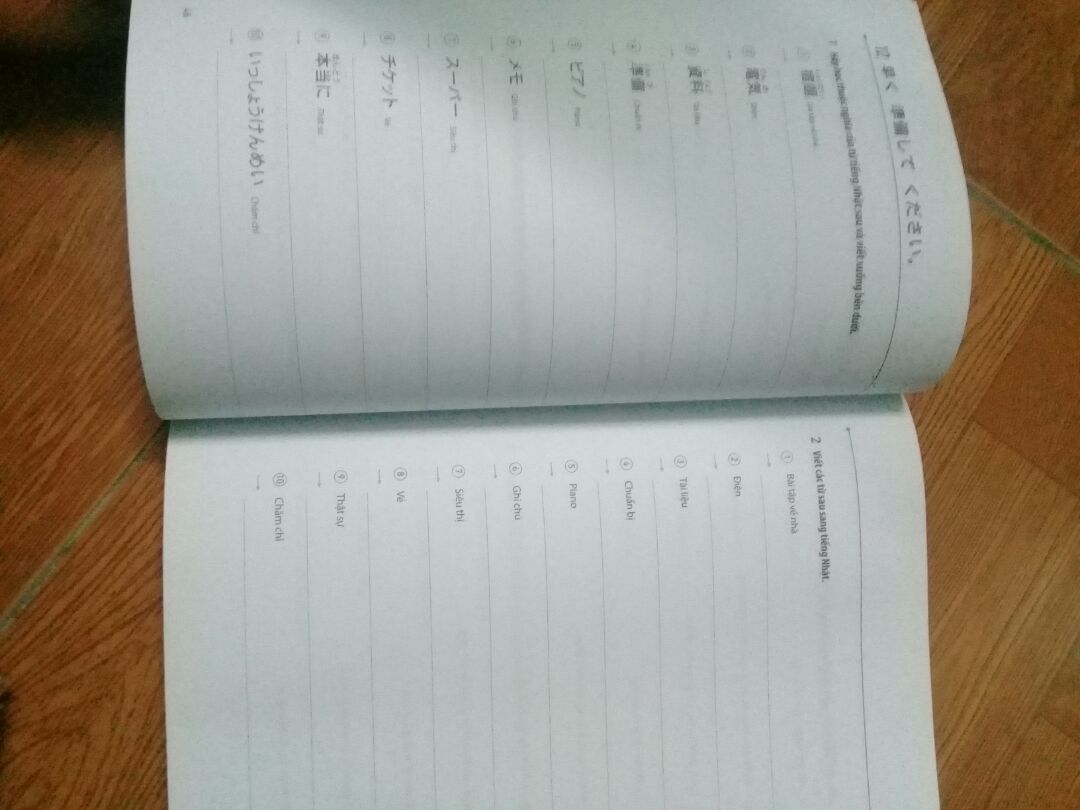 早く 準備して ください。
1 Hãy học thuộc nghĩa của từ tiếng Nhật sau và viết xuống bên dưới.
① 宿題
→
② 電気 Điện
→
③ 資料 Tài liệu
→
④ 準備 Chuẩn bị
→
⑤ ピアノ Piano
→
⑥ メモ Ghi chú
→
⑦ スーパー Siêu thị
→
⑧ チケット Vé
→
ほんとう
⑨ 本当に Thật sự
→
⑩ いっしょうけんめい Chăm chỉ
→
46
2 Viết các từ sau sang tiếng Nhật.
① Bài tập về nhà
→
② Điện
→
③ Tài liệu
→
④ Chuẩn bị
→
⑤ Piano
→
⑥ Ghi chú
→
⑦ Siêu thị
→
⑧ Vé
→
⑨ Thật sự
→
⑩ Chăm chỉ
→